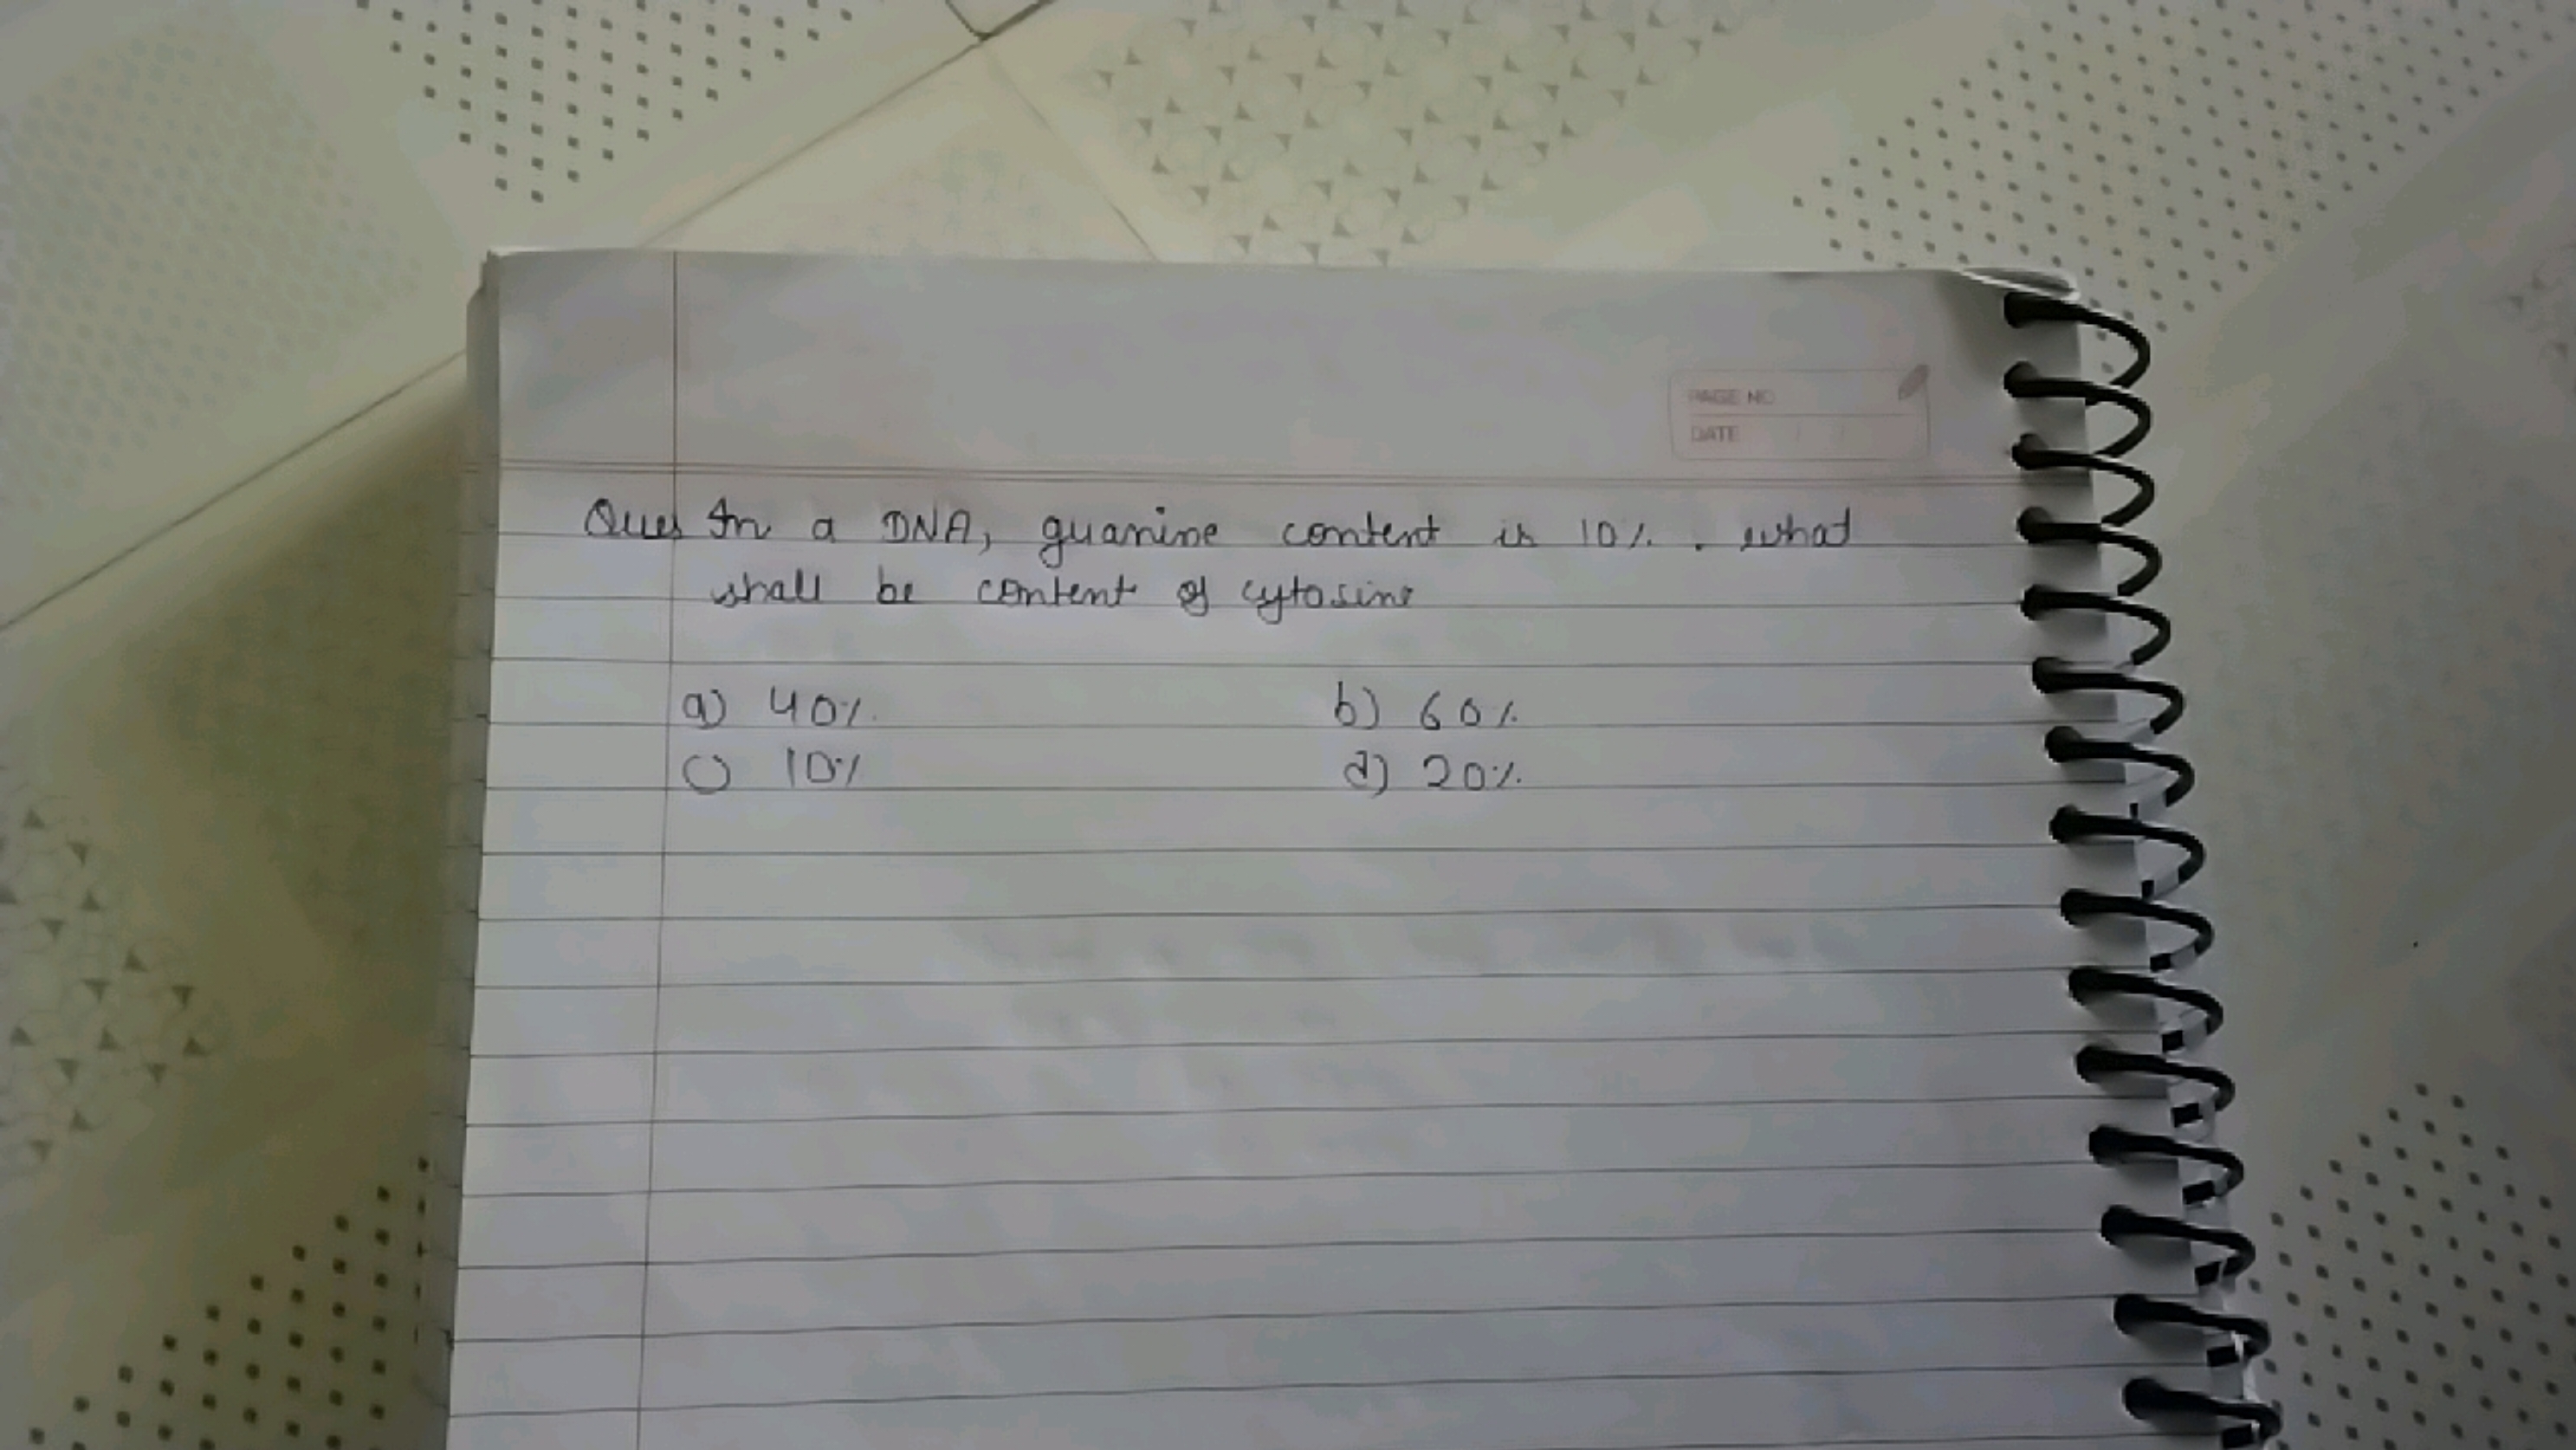 PAGE NO
DATE / /
Ques In a DNA, guanine content is 10%. what
shall be content of cytosine
a) 40% b) 60%
c) 10% d) 20%